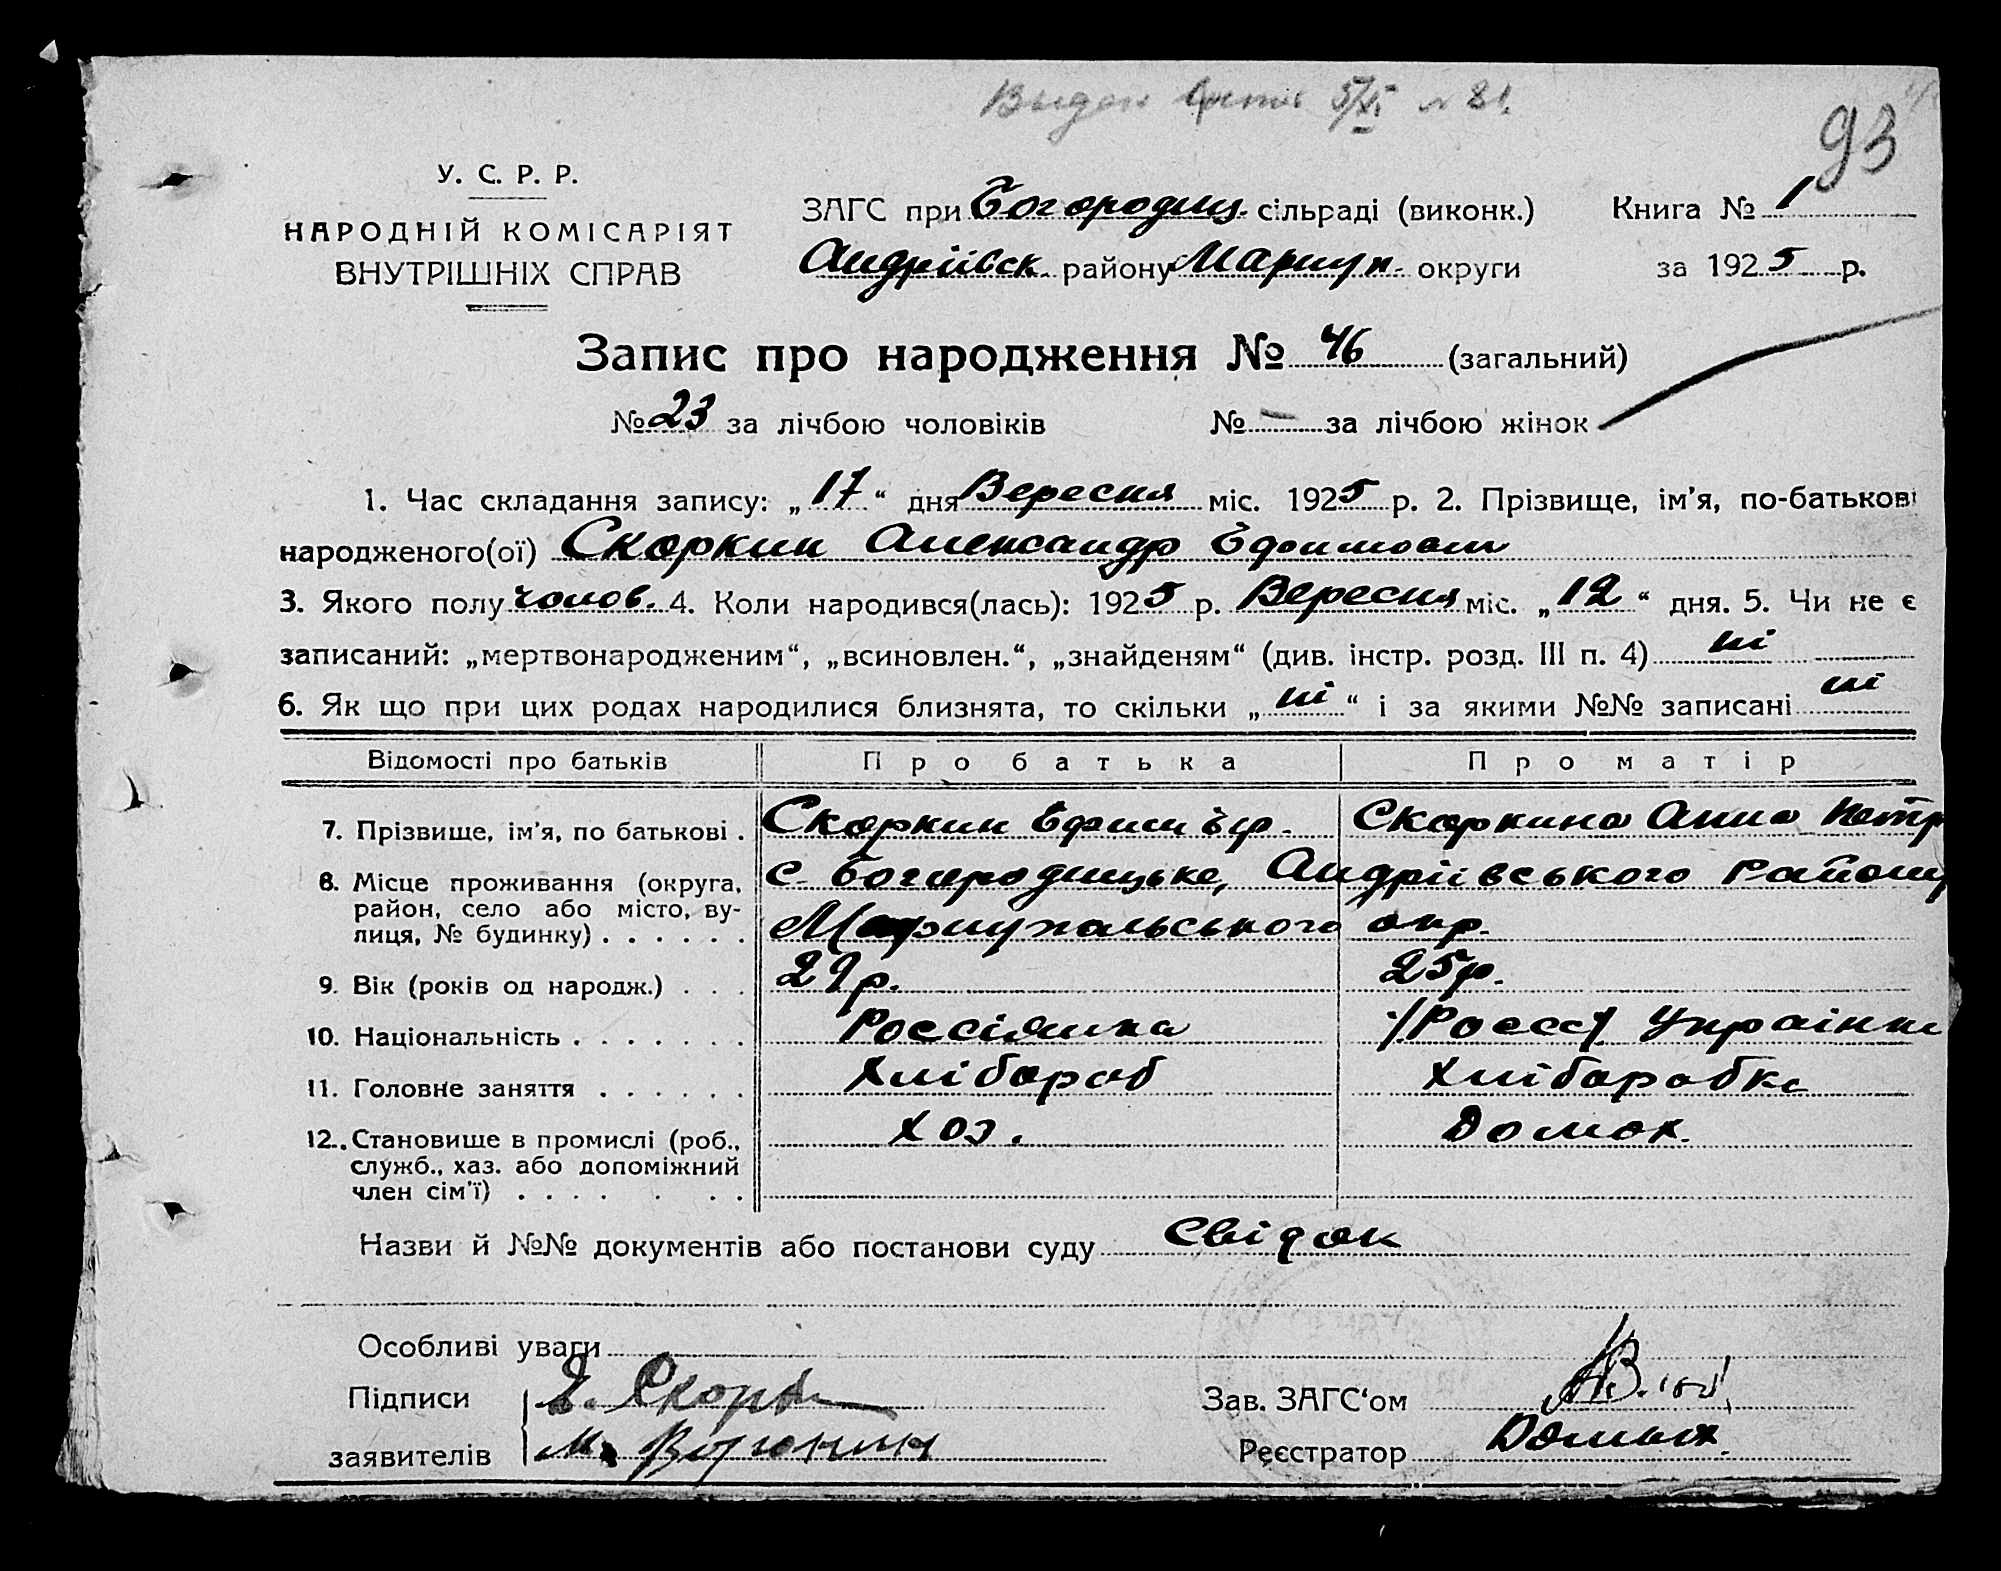 Выдан 5/XI № 81.
93
У. С. Р. Р.
НАРОДНІЙ КОМІСАРІЯТ
ВНУТРІШНІХ СПРАВ
ЗАГС при Богородиц. сільраді (виконк.)
Андріївск. району Мариуп. округи
Книга № 1
за 1925 р.
Запис про народження № 46 (загальний)
№ 23 за лічбою чоловіків № — за лічбою жінок
1. Час складання запису: „17“ дня Вересня міс. 1925 р. 2. Прізвище, ім'я, по-батькові
народженого(ої) Скоркин Александр Ефимович
3. Якого полу чолов. 4. Коли народився(лась): 1925 р. Вересня міс. „12“ дня. 5. Чи не є
записаний: „мертвонародженим“, „всиновлен.“, „знайденям“ (див. інстр. розд. III п. 4) ні
6. Як що при цих родах народилися близнята, то скільки „ні“ і за якими №№ записані ні
Відомості про батьків Про батька Про матір
7. Прізвище, ім'я, по батькові . Скоркин Ефим Скоркина Анна Петр
8. Місце проживання (округа, с. Богородицьке, Андріївського Району
район, село або місто, ву-
лиця, № будинку) . . . . . . Мариупольського окр.
9. Вік (років од народж.) . . . 29 р. 25 р.
10. Національність . . . . . . . Россіянина /Росс/ Українк
11. Головне заняття . . . . . . Хлібороб Хлібаробка
12. Становище в промислі (роб., Хоз. Домох.
служб., хаз. або допоміжний
член сім'ї) . . . . . . .
Назви й №№ документів або постанови суду Свідок
Особливі уваги
Підписи Е. Скорк
заявителів М. Воронин
Зав. ЗАГС'ом
Реєстратор